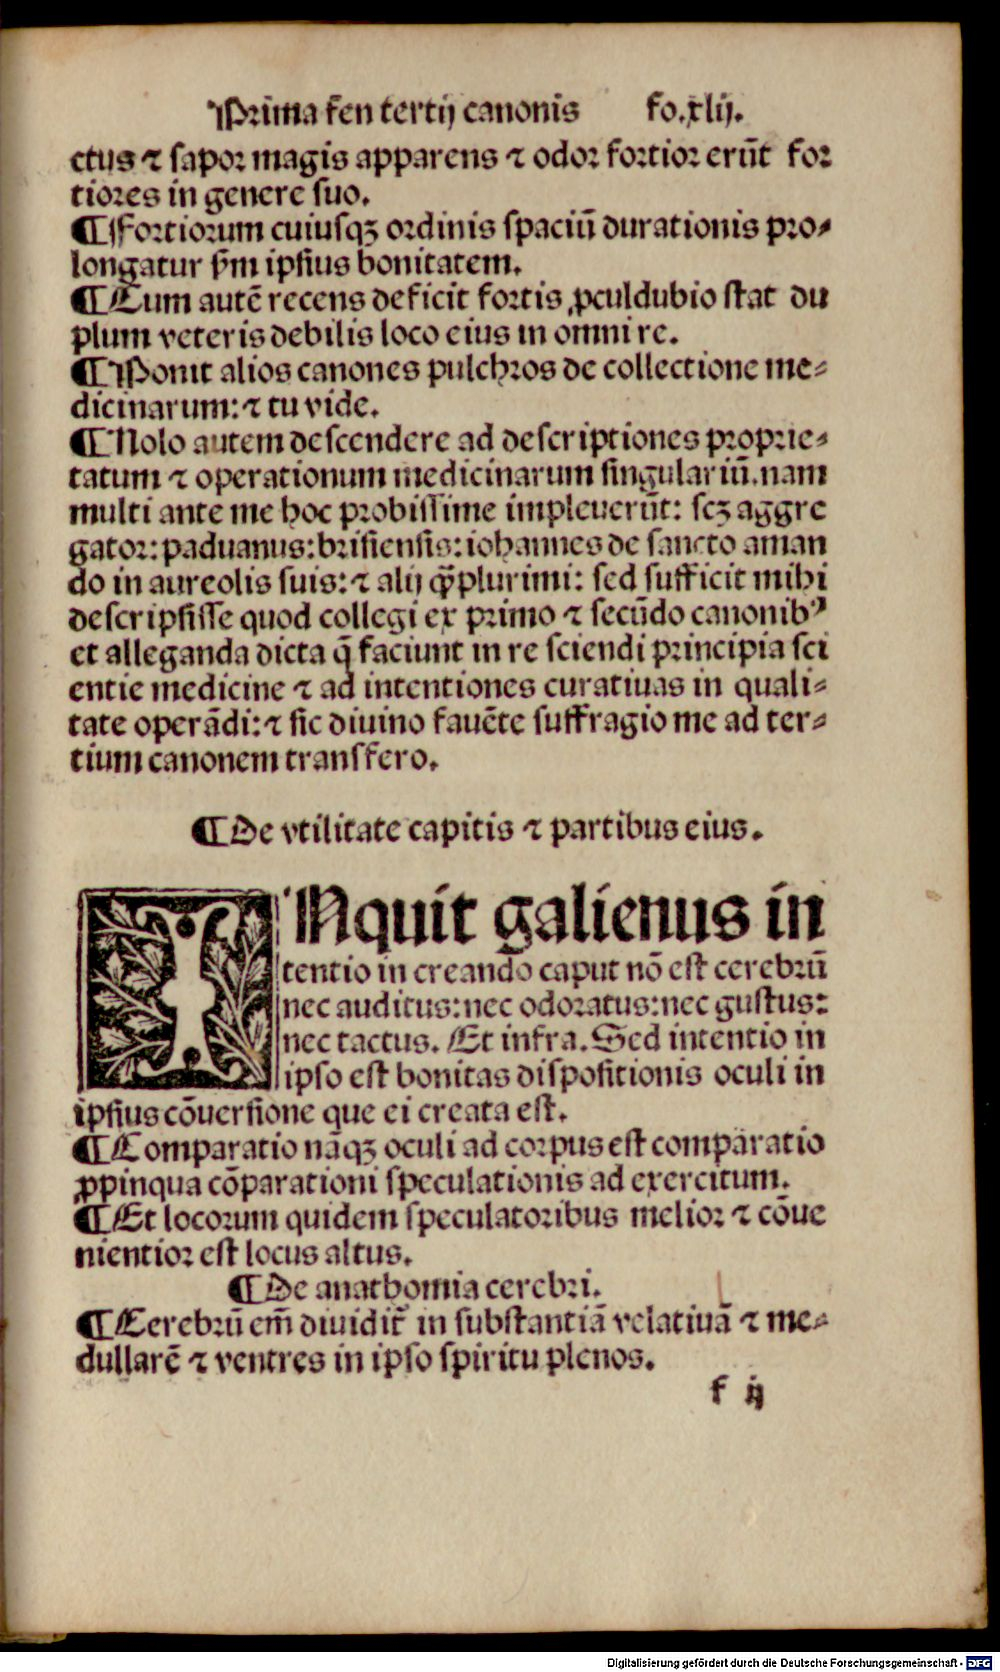 Prima fen tertij canonis fo.xlij.
ctus ⁊ sapor magis apparens ⁊ odor fortior erūt for
tiores in genere suo.
¶ Fortiorum cuiusqꝫ ordinis spaciū durationis pro-
longatur ẜm ipsius bonitatem.
¶ Cum autē recens deficit fortis ꝓculdubio stat du
plum veteris debilis loco eius in omni re.
¶ Ponit alios canones pulchros de collectione me-
dicinarum: ⁊ tu vide.
¶ Nolo autem descendere ad descriptiones proprie-
tatum ⁊ operationum medicinarum singulariū. nam
multi ante me hoc probissime impleuerūt: scꝫ aggre
gator: paduanus: brisiensis: iohannes de sancto aman
do in aureolis suis: ⁊ alij q̄ꝫplurimi: sed sufficit mihi
descripsisse quod collegi ex primo ⁊ secūdo canonibꝰ
et alleganda dicta q̄ faciunt in re sciendi principia sci
entie medicine ⁊ ad intentiones curatiuas in quali-
tate operādi: ⁊ sic diuino fauēte suffragio me ad ter-
tium canonem transfero.
¶ De vtilitate capitis ⁊ partibus eius.
INquit galienus in
tentio in creando caput nō est cerebrū
nec auditus: nec odoratus: nec gustus:
nec tactus. Et infra. Sed intentio in
ipso est bonitas dispositionis oculi in
ipsius cōuersione que ei creata est.
¶ Comparatio nāqꝫ oculi ad corpus est comparatio
ꝓpinqua cōparationi speculationis ad exercitum.
¶ Et locorum quidem speculatoribus melior ⁊ cōue
nientior est locus altus.
¶ De anathomia cerebri.
¶ Cerebrū em̄ diuidit̄ in substantiā velatiuā ⁊ me-
dullarē ⁊ ventres in ipso spiritu plenos.
f ij
Digitalisierung gefördert durch die Deutsche Forschungsgemeinschaft - DFG